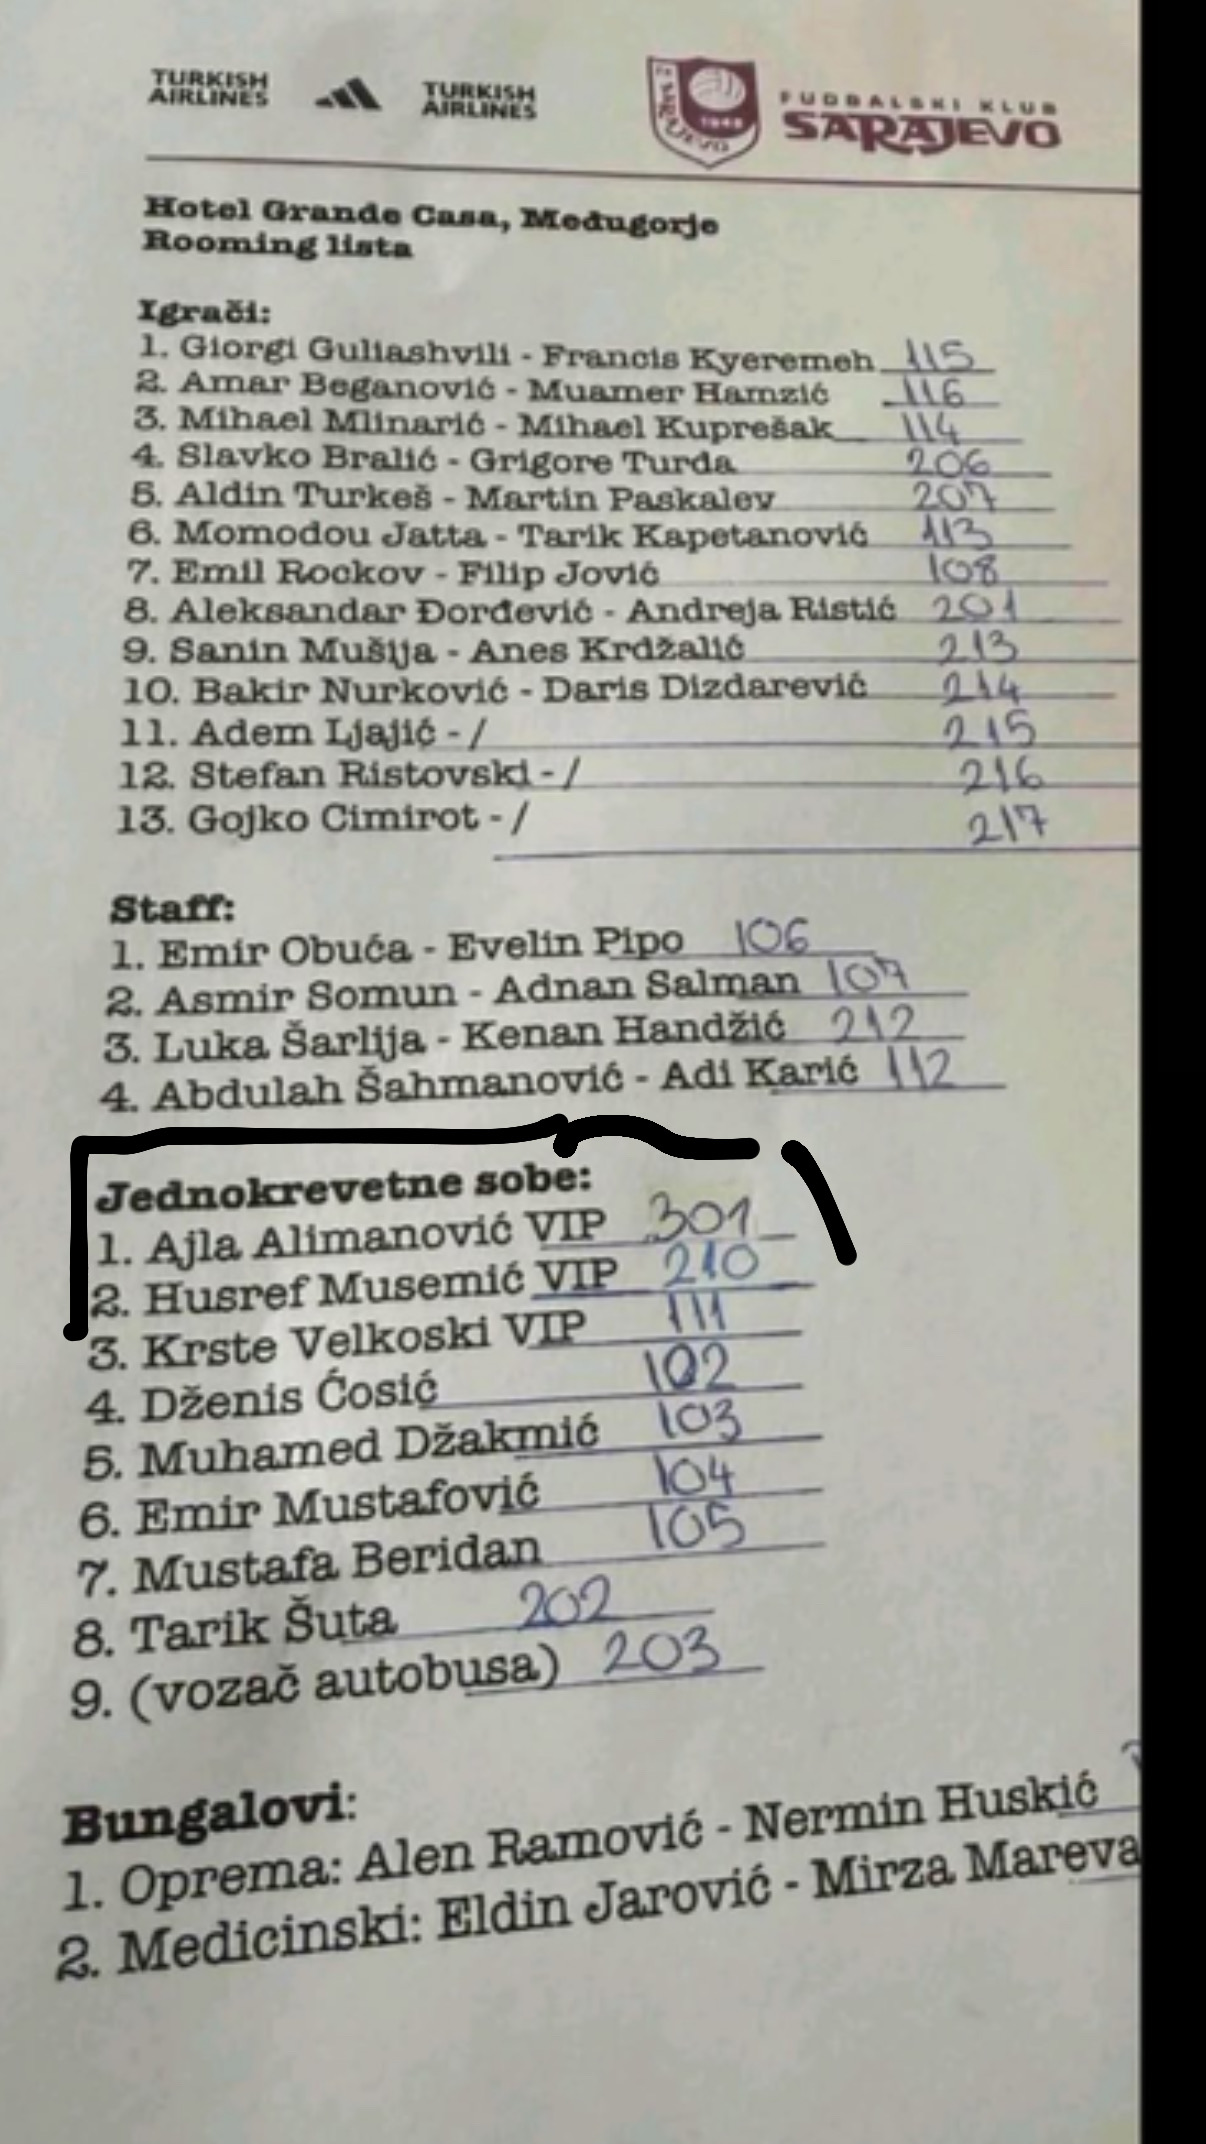 TURKISH AIRLINES
TURKISH AIRLINES
FK SARAJEVO 1946
FUDBALSKI KLUB
SARAJEVO
Hotel Grande Casa, Međugorje
Rooming lista
Igrači:
1. Giorgi Guliashvili - Francis Kyeremeh 115
2. Amar Beganović - Muamer Hamzić 116
3. Mihael Mlinarić - Mihael Kuprešak 114
4. Slavko Bralić - Grigore Turda 206
5. Aldin Turkeš - Martin Paskalev 207
6. Momodou Jatta - Tarik Kapetanović 113
7. Emil Rockov - Filip Jović 108
8. Aleksandar Đorđević - Andreja Ristić 201
9. Sanin Mušija - Anes Krdžalić 213
10. Bakir Nurković - Daris Dizdarević 214
11. Adem Ljajić - / 215
12. Stefan Ristovski - / 216
13. Gojko Cimirot - / 217
Staff:
1. Emir Obuća - Evelin Pipo 106
2. Asmir Somun - Adnan Salman 107
3. Luka Šarlija - Kenan Handžić 212
4. Abdulah Šahmanović - Adi Karić 112
Jednokrevetne sobe:
1. Ajla Alimanović VIP 301
2. Husref Musemić VIP 210
3. Krste Velkoski VIP 111
4. Dženis Ćosić 102
5. Muhamed Džakmić 103
6. Emir Mustafović 104
7. Mustafa Beridan 105
8. Tarik Šuta 202
9. (vozač autobusa) 203
Bungalovi:
1. Oprema: Alen Ramović - Nermin Huskić
2. Medicinski: Eldin Jarović - Mirza Mareva